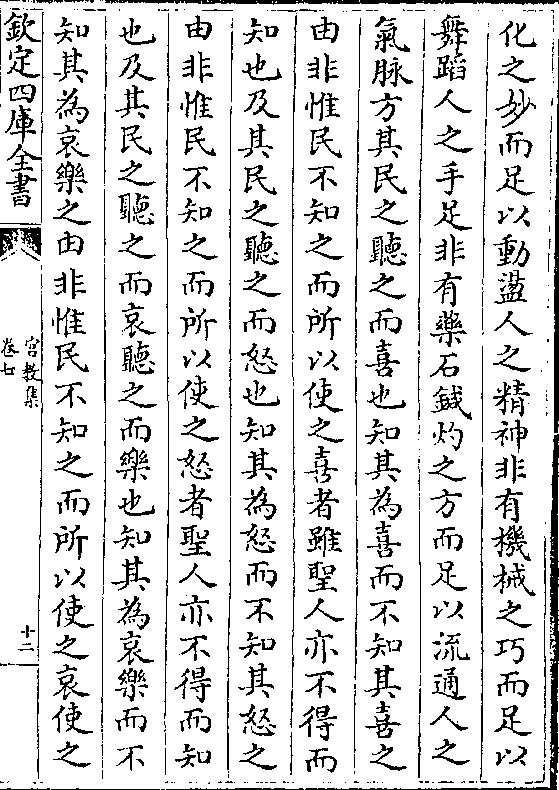 化之妙而足以動盪人之精神非有機械之巧而足以
舞蹈人之手足非有藥石鍼灼之方而足以流通人之
氣脉方其民之聽之而喜也知其為喜而不知其喜之
由非惟民不知之而所以使之喜者雖聖人亦不得而
知也及其民之聽之而怒也知其為怒而不知其怒之
由非惟民不知之而所以使之怒者聖人亦不得而知
也及其民之聽之而哀聽之而樂也知其為哀樂而不
知其為哀樂之由非惟民不知之而所以使之哀使之
欽定四庫全書
宫教集
卷七
十二